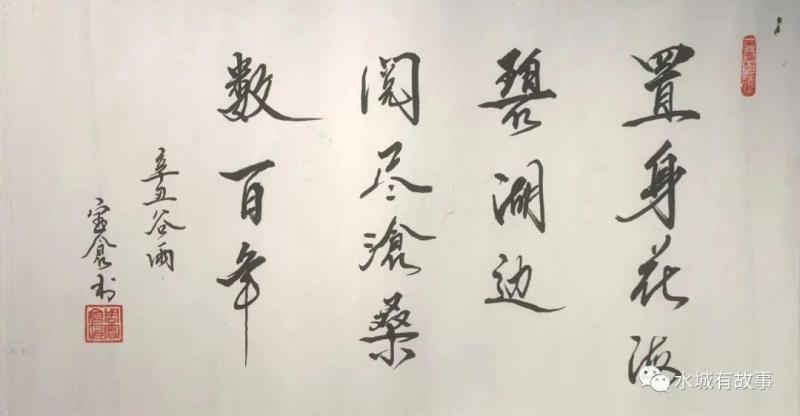 置身花海
碧湖边
阅尽沧桑
数百年
辛丑谷雨
水城有故事